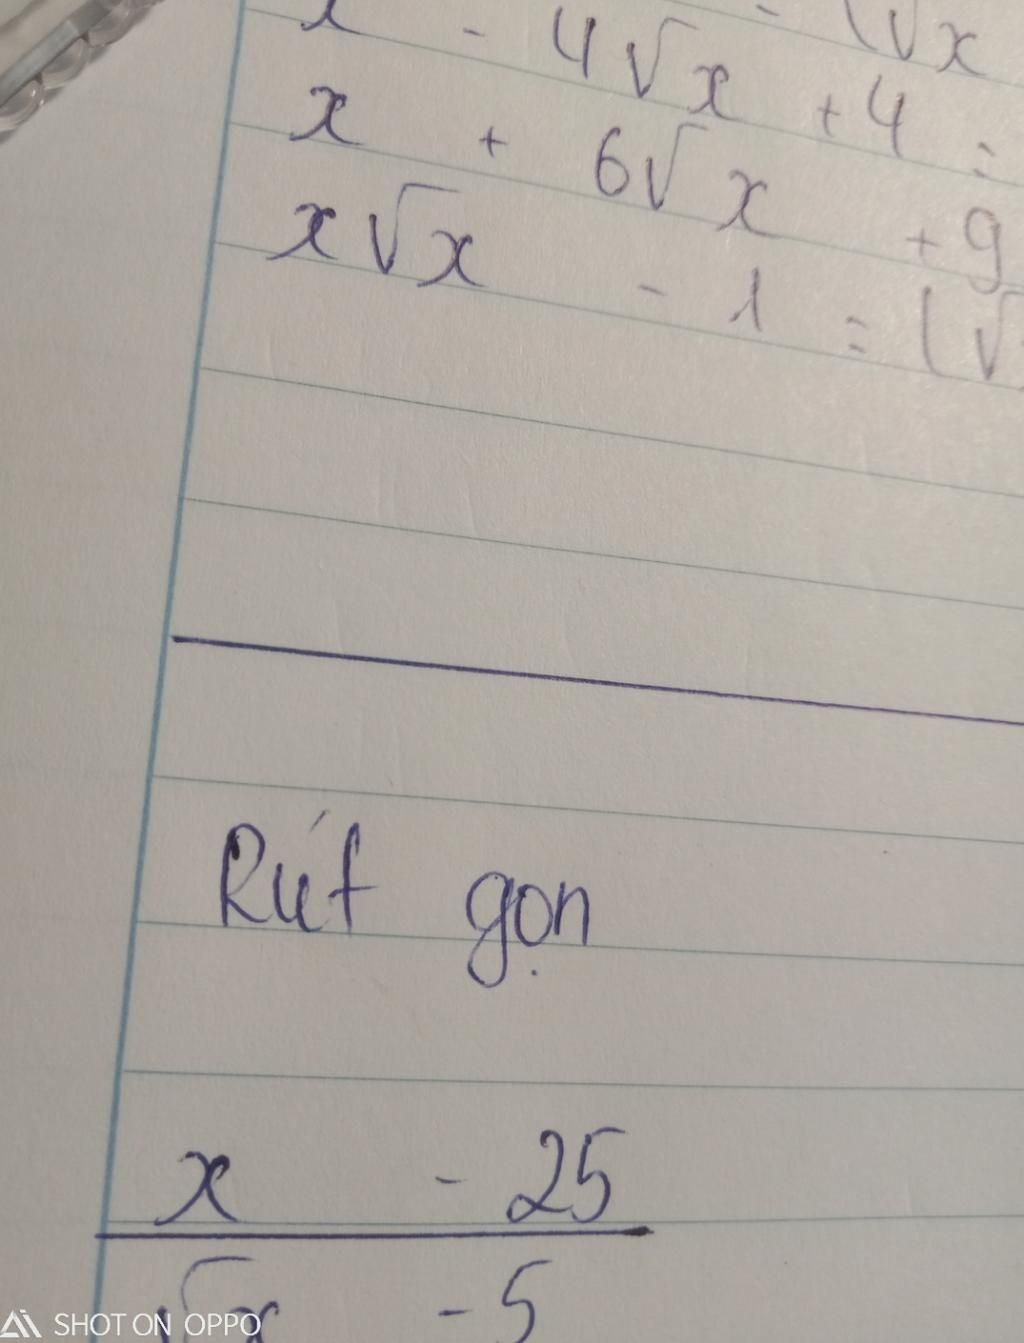 - (√x
x - 4√x + 4 =
x + 6√x + 9
x√x - 1 = (√
Rút gọn
x - 25
√x - 5
SHOT ON OPPO